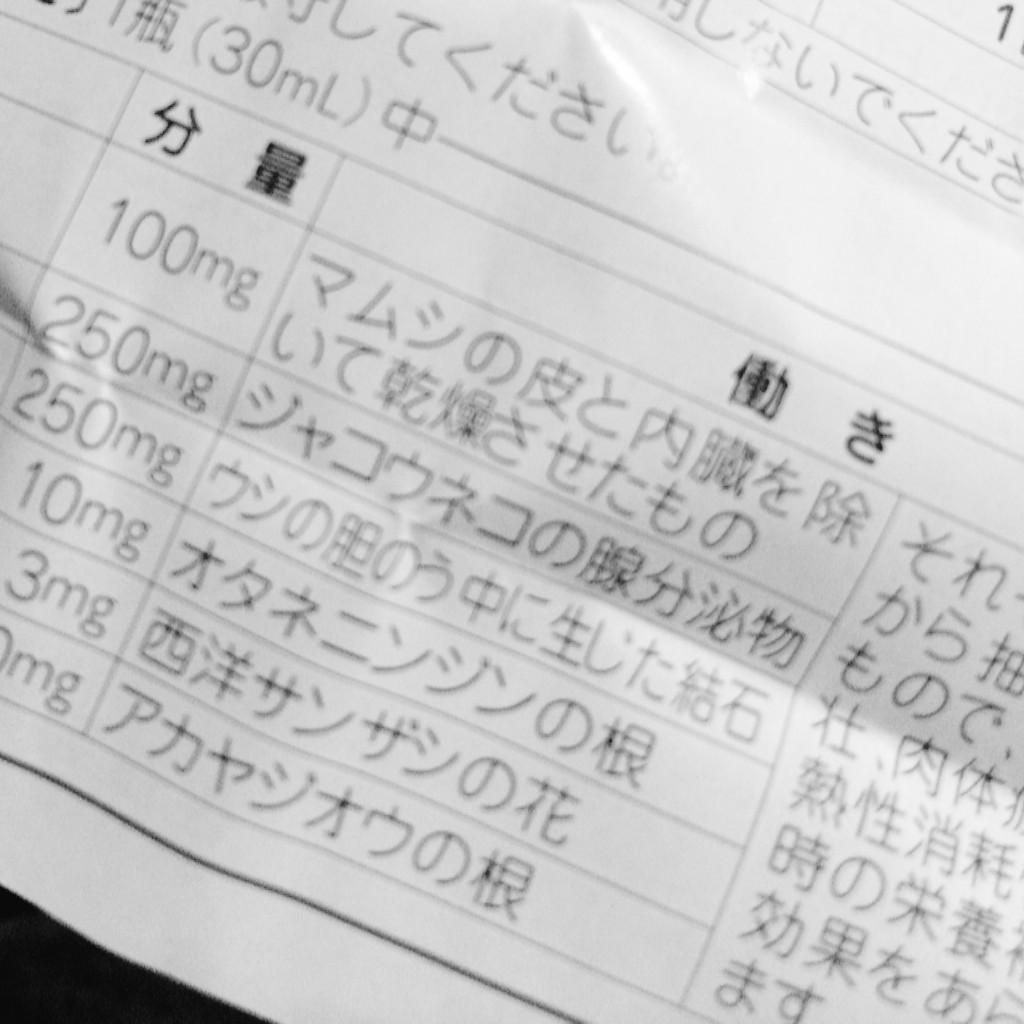 してください。
用しないでくださ
1瓶(30mL)中
分量
働き
100mg
マムシの皮と内臓を除
いて乾燥させたもの
250mg
ジャコウネコの腺分泌物
250mg
ウシの胆のう中に生じた結石
10mg
オタネニンジンの根
3mg
西洋サンザシの花
0mg
アカヤジオウの根
それ
から抽
もので、
壮、肉体
熱性消耗
時の栄養
効果をあら
ます